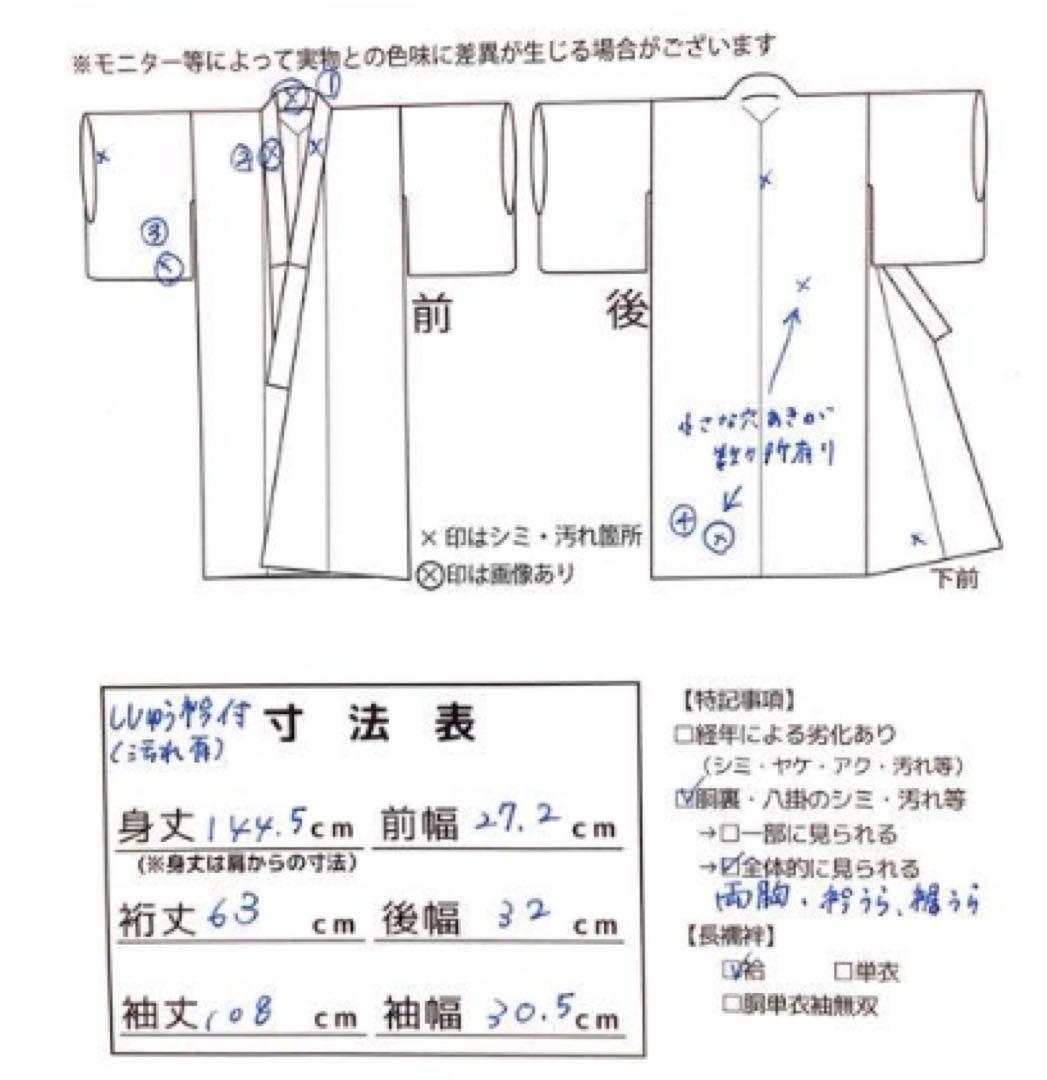 ※モニター等によって実物との色味に差異が生じる場合がございます
①
②
③
前
後
小さな穴あきが
数ヶ所有り
④
×印はシミ・汚れ箇所
⊗印は画像あり
下前
ししゅう衿付
(汚れ有)
寸法表
身丈144.5cm 前幅27.2cm
(※身丈は肩からの寸法)
裄丈63cm 後幅32cm
袖丈108cm 袖幅30.5cm
【特記事項】
□経年による劣化あり
(シミ・ヤケ・アク・汚れ等)
☑胴裏・八掛のシミ・汚れ等
→□一部に見られる
→☑全体的に見られる
両胸・衿うら、裾うら
【長襦袢】
☑袷 □単衣
□胴単衣袖無双